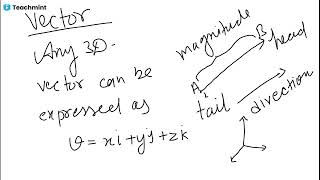 Teachmint
Vector
Any 3D
vector can be
expressed as
v = xi + yj + zk
magnitude
A
B
head
tail
direction